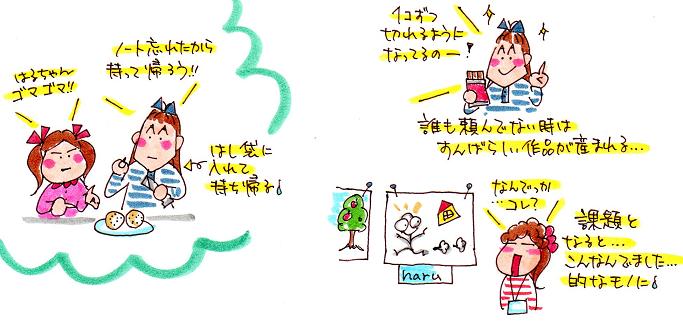 はるちゃん
ゴマゴマ!!
ノート忘れたから
持って帰ろう!!
はし袋に
入れて
持ち帰る♪
1コずつ
切れるように
なってるのー!
誰も頼んでない時は
すんばらしい作品が産まれる…
なんでっか
…コレ?
課題と
なると…
こんなんでました…
的なモノに♪
haru